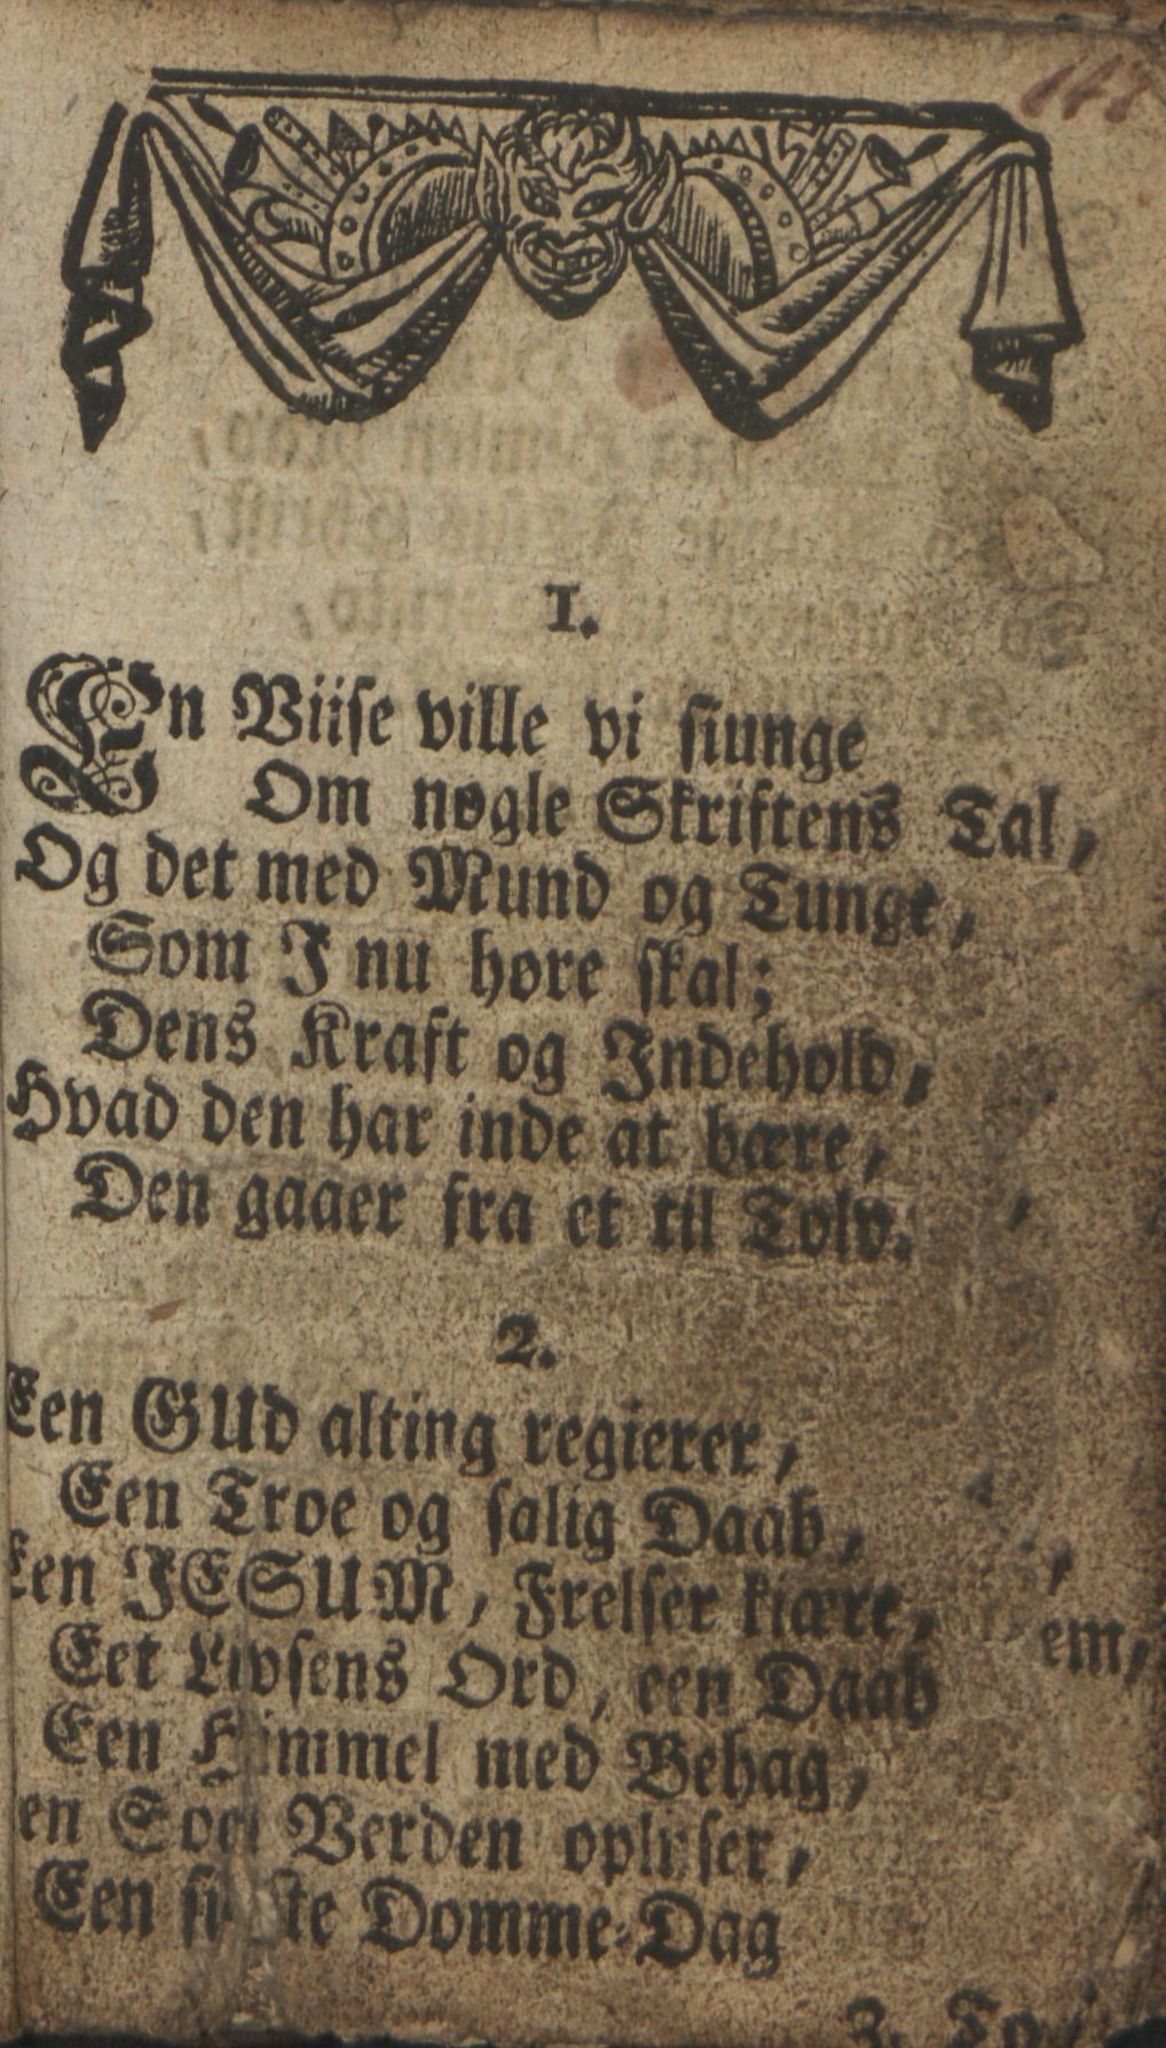 1.
En Viise ville vi siunge
Om nogle Skriftens Tal,
Og det med Mund og Tunge,
Som I nu høre skal;
Dens Kraft og Indehold,
Hvad den har inde at bære,
Den gaaer fra et til Tolv.
2.
Een GUD alting regierer,
Een Troe og salig Daab,
Een JESUM, Frelser kiære,
Eet Livsens Ord, een Daab
Een Himmel med Behag,
en Soel Verden oplyser,
Een sidste Domme-Dag
em,
3. To